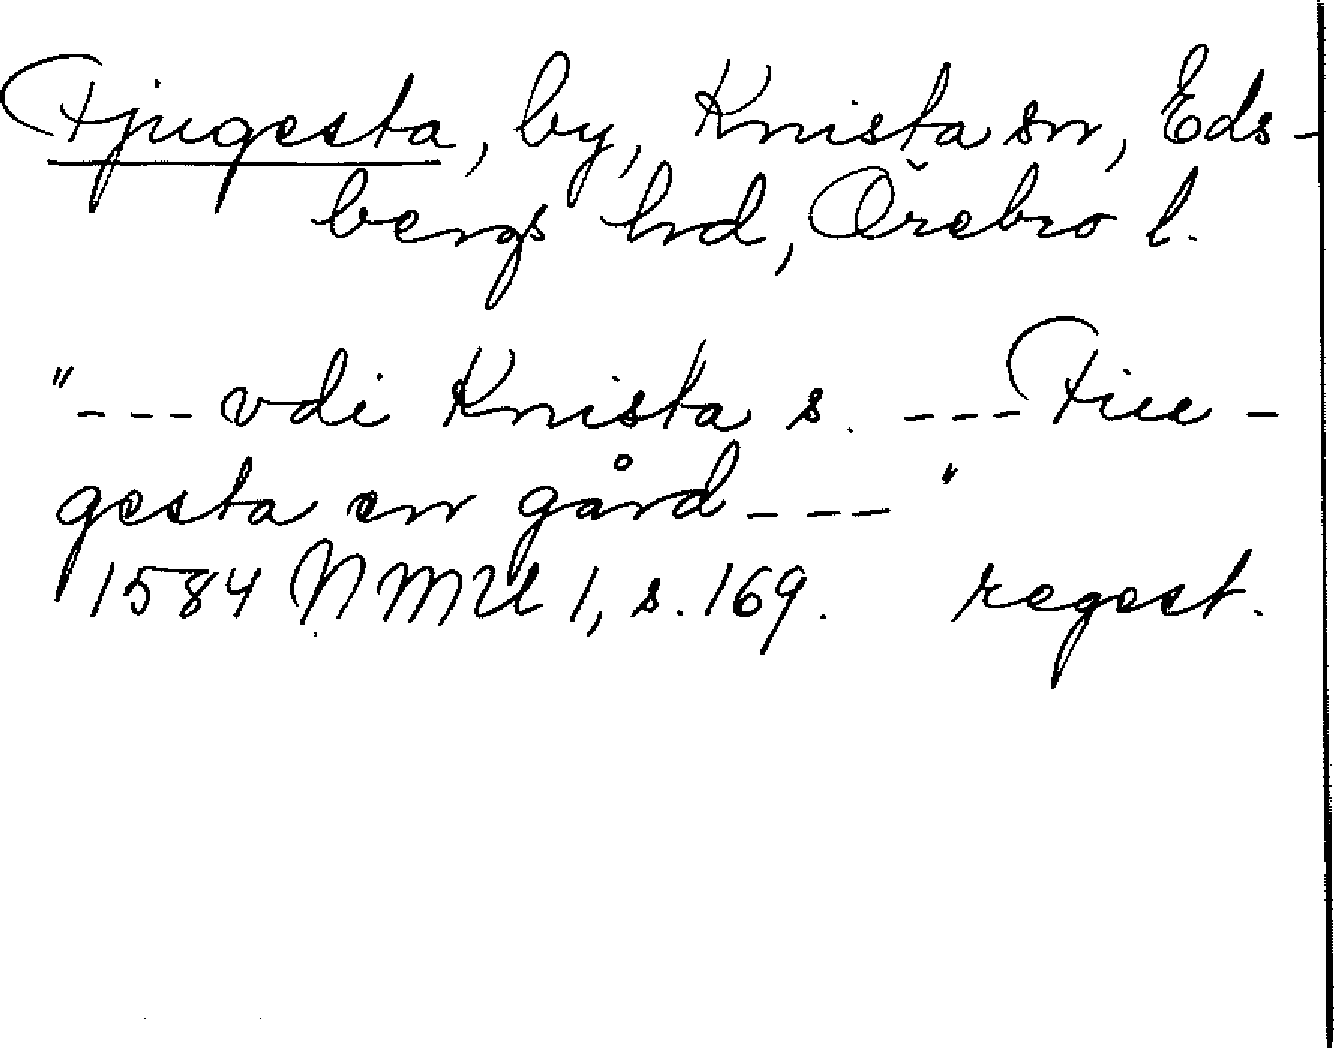 Fjugesta, by, Knista sn, Eds-
bergs hd, Örebro l.
"--- vdi Knista s. --- Fiu-
gesta en gård --- "
1584 NMU 1, s. 169. regest.